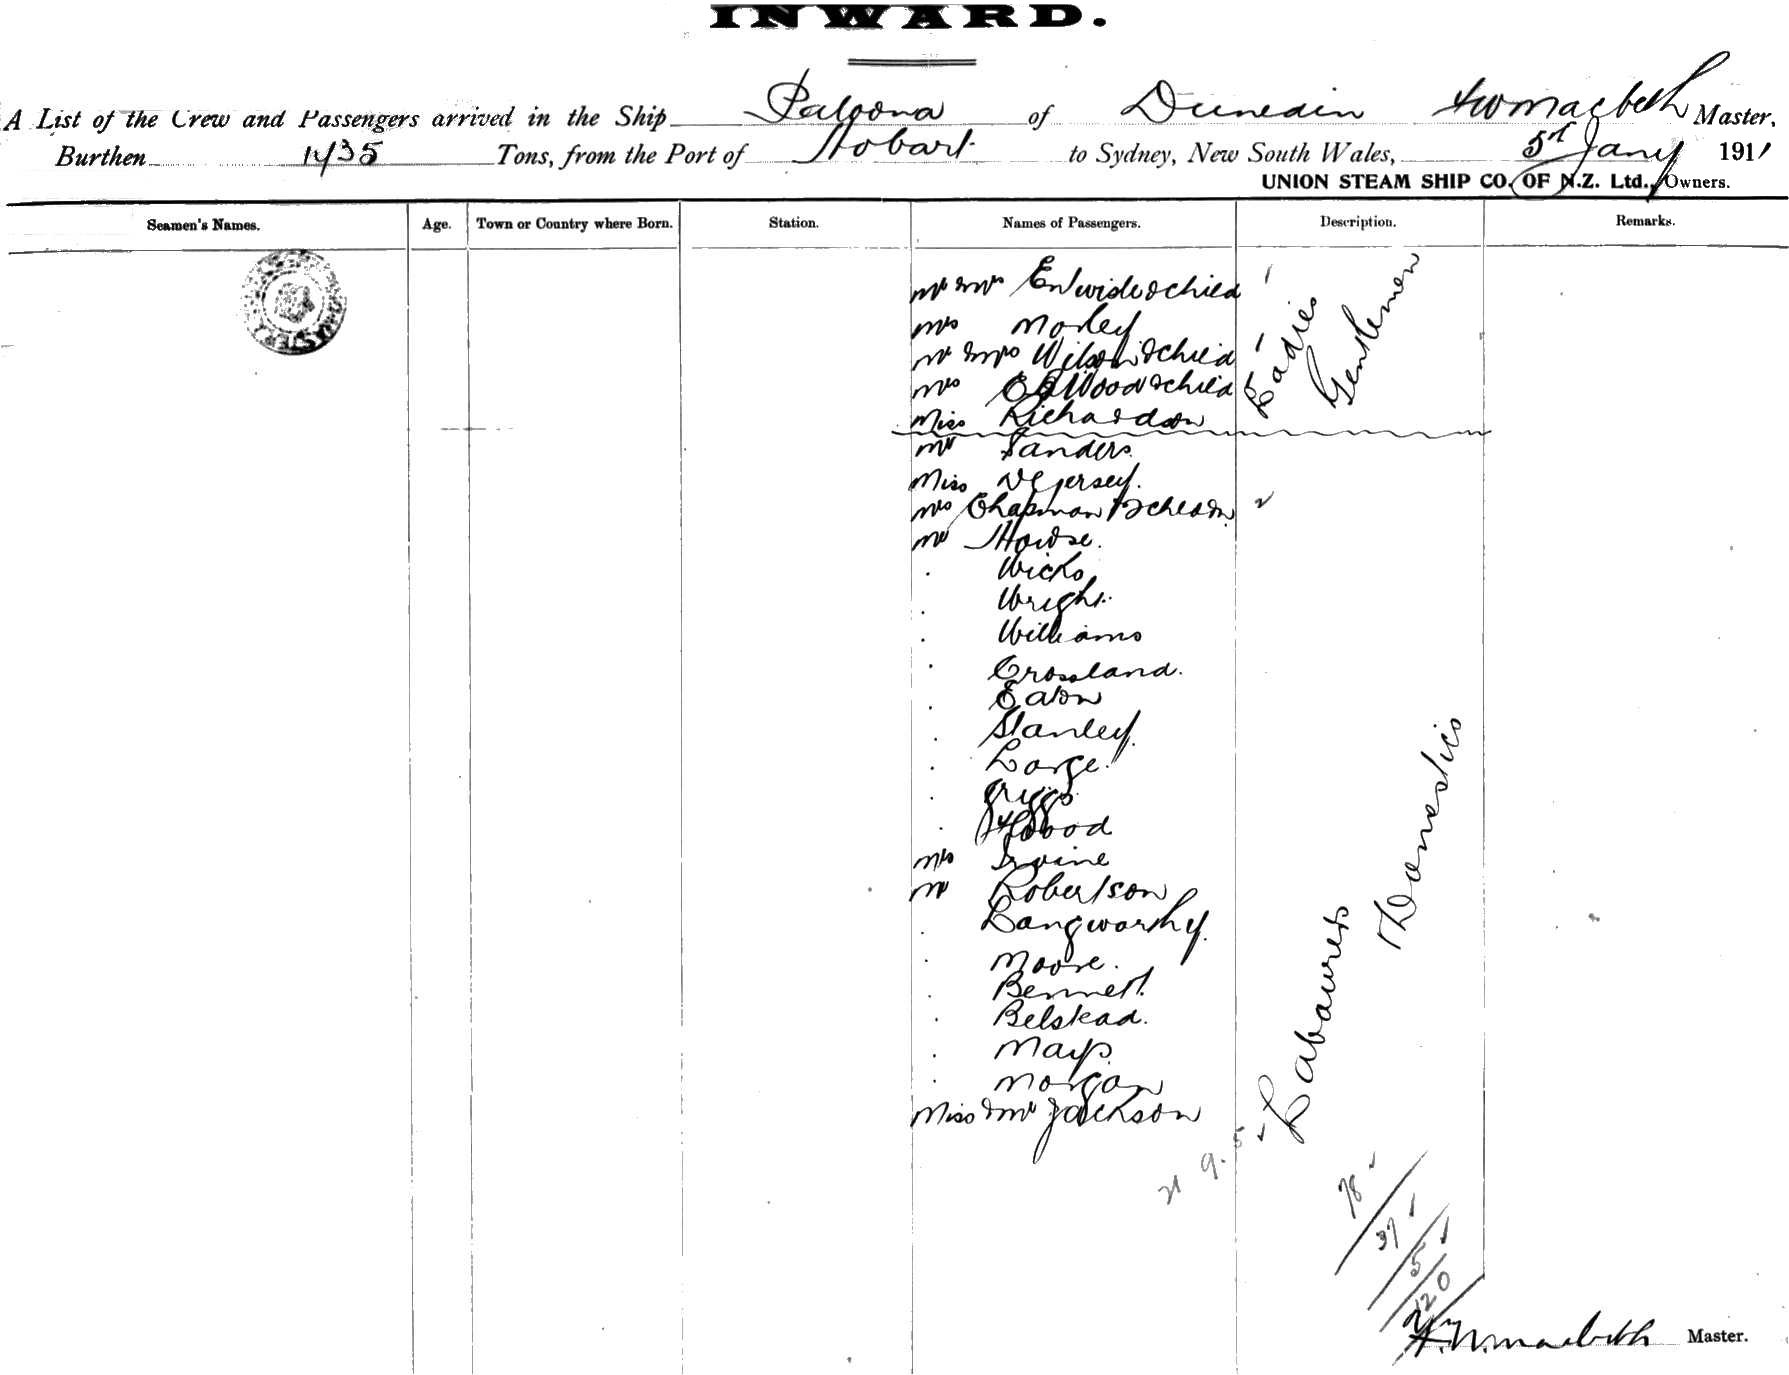 INWARD.
A List of the Crew and Passengers arrived in the Ship Paloona of Dunedin A W Macbeth Master,
Burthen 1435 Tons, from the Port of Hobart to Sydney, New South Wales, 5th Jany 1911
UNION STEAM SHIP CO. OF N.Z. Ltd., Owners.
Seamen's Names. Age. Town or Country where Born. Station. Names of Passengers. Description. Remarks.
Mr & Mrs Entwisle & child 1
Mrs Morley
Mr & Mrs Wilson & child 1
Mrs Wood & child
Miss Richardson
Ladies
Gentlemen
Mr Sanders
Miss Jersey.
Mrs Chapman & 2 children 2
Mr Howse.
. Wicks
. Wright.
. Williams
. Crossland.
. Eaton
. Stanley.
. Large.
. Griggs
. Hood
Mrs Irvine
Mr Robertson
. Langworthy.
. Moore.
. Bennett.
. Belstead.
. Mays.
. Morgan
Miss & Mr Jackson
Labourers
Domestics
21 9. 5
78
37
5
120
A. W. Macbeth Master.